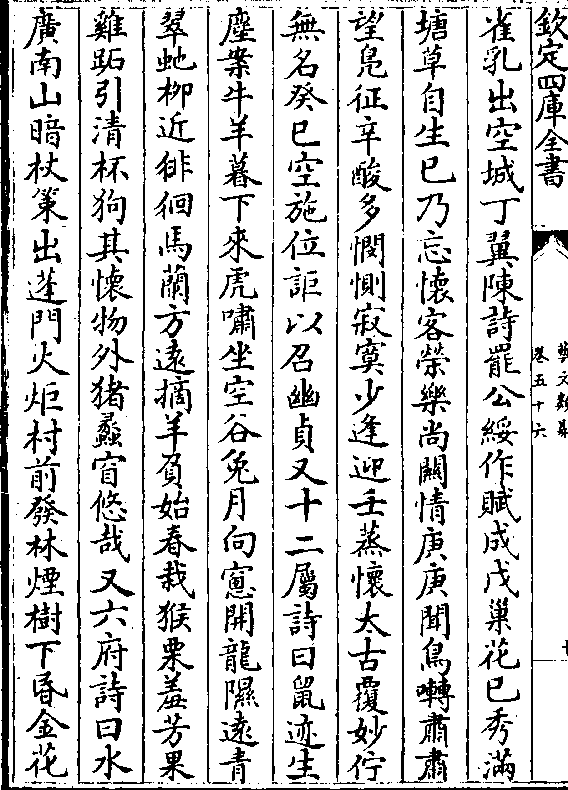 欽定四庫全書
藝文類聚
卷五十六
雀乳出空城丁翼陳詩罷公綏作賦成戊巢花已秀滿
塘草自生已乃忘懷客榮樂尚關情庚庚聞鳥囀肅肅
望鳧征辛酸多憫惻寂寞少逢迎壬蒸懷太古覆妙佇
無名癸巳空施位詎以召幽貞又十二屬詩曰鼠迹生
塵案牛羊暮下來虎嘯坐空谷兔月向窻開龍隰遠青
翠虵柳近徘徊馬蘭方遠摘羊負始春栽猴栗羞芳果
雞跖引清杯狗其懷物外猪蠡窅悠哉又六府詩曰水
廣南山暗杖策出蓬門火炬村前發林煙樹下昏金花